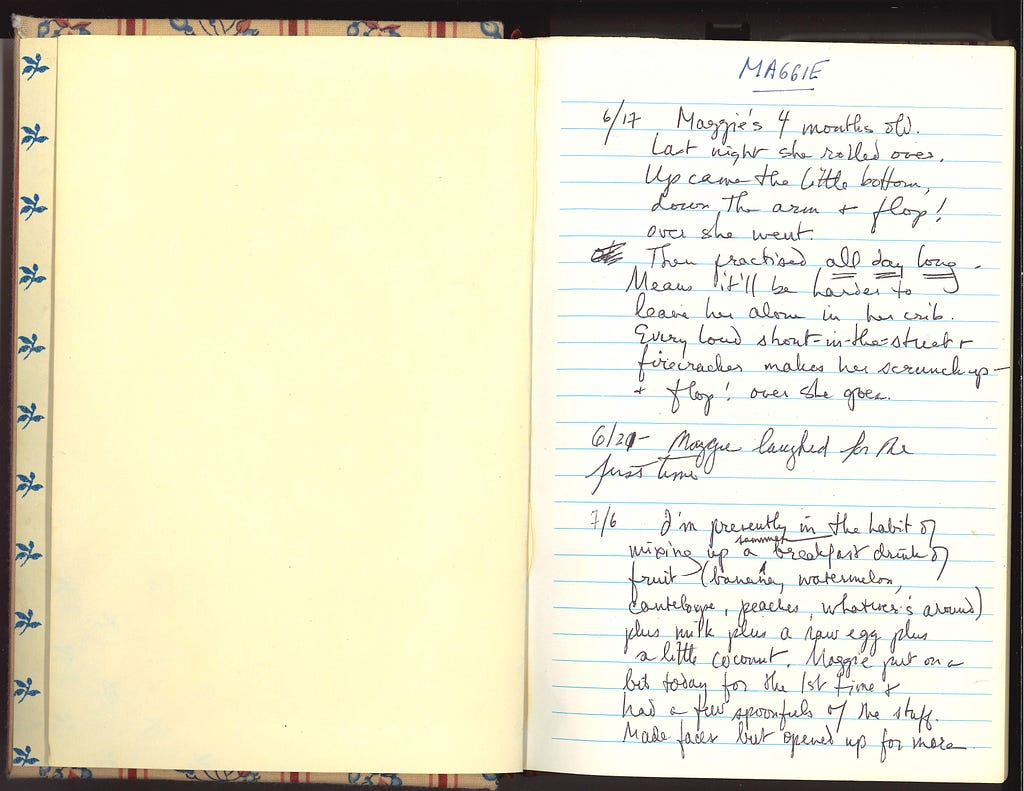 MAGGIE
6/17 Maggie's 4 months old.
Last night she rolled over.
Up came the little bottom,
down the arm + flop!
over she went.
Then practised all day long.
Means it'll be harder to
leave her alone in her crib.
Every loud shout-in-the-street +
firecracker makes her scrunch up -
+ flop! over she goes.
6/21- Maggie laughed for the
first time
7/6 I'm presently in the habit of
mixing up a summer breakfast drink of
fruit (banana, watermelon,
canteloupe, peaches, whatever's around)
plus milk plus a raw egg plus
a little coconut. Maggie put on a
bib today for the 1st time +
had a few spoonfuls of the stuff.
Made faces but opened up for more